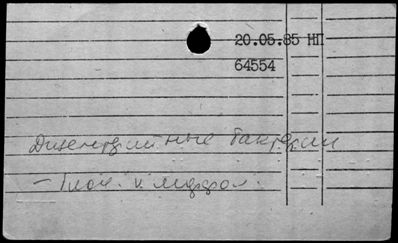 20.05.85 НП
64554
Дизентерийные бактерии
– биол.